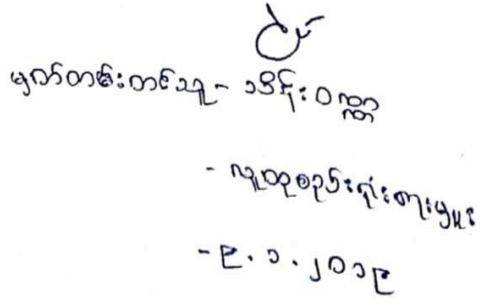 မှတ်တမ်းတင်သူ - သိန်းဝဏ္ဏ
- လူထုစည်းရုံးရေးမှူး
- ၉.၁.၂၀၁၉